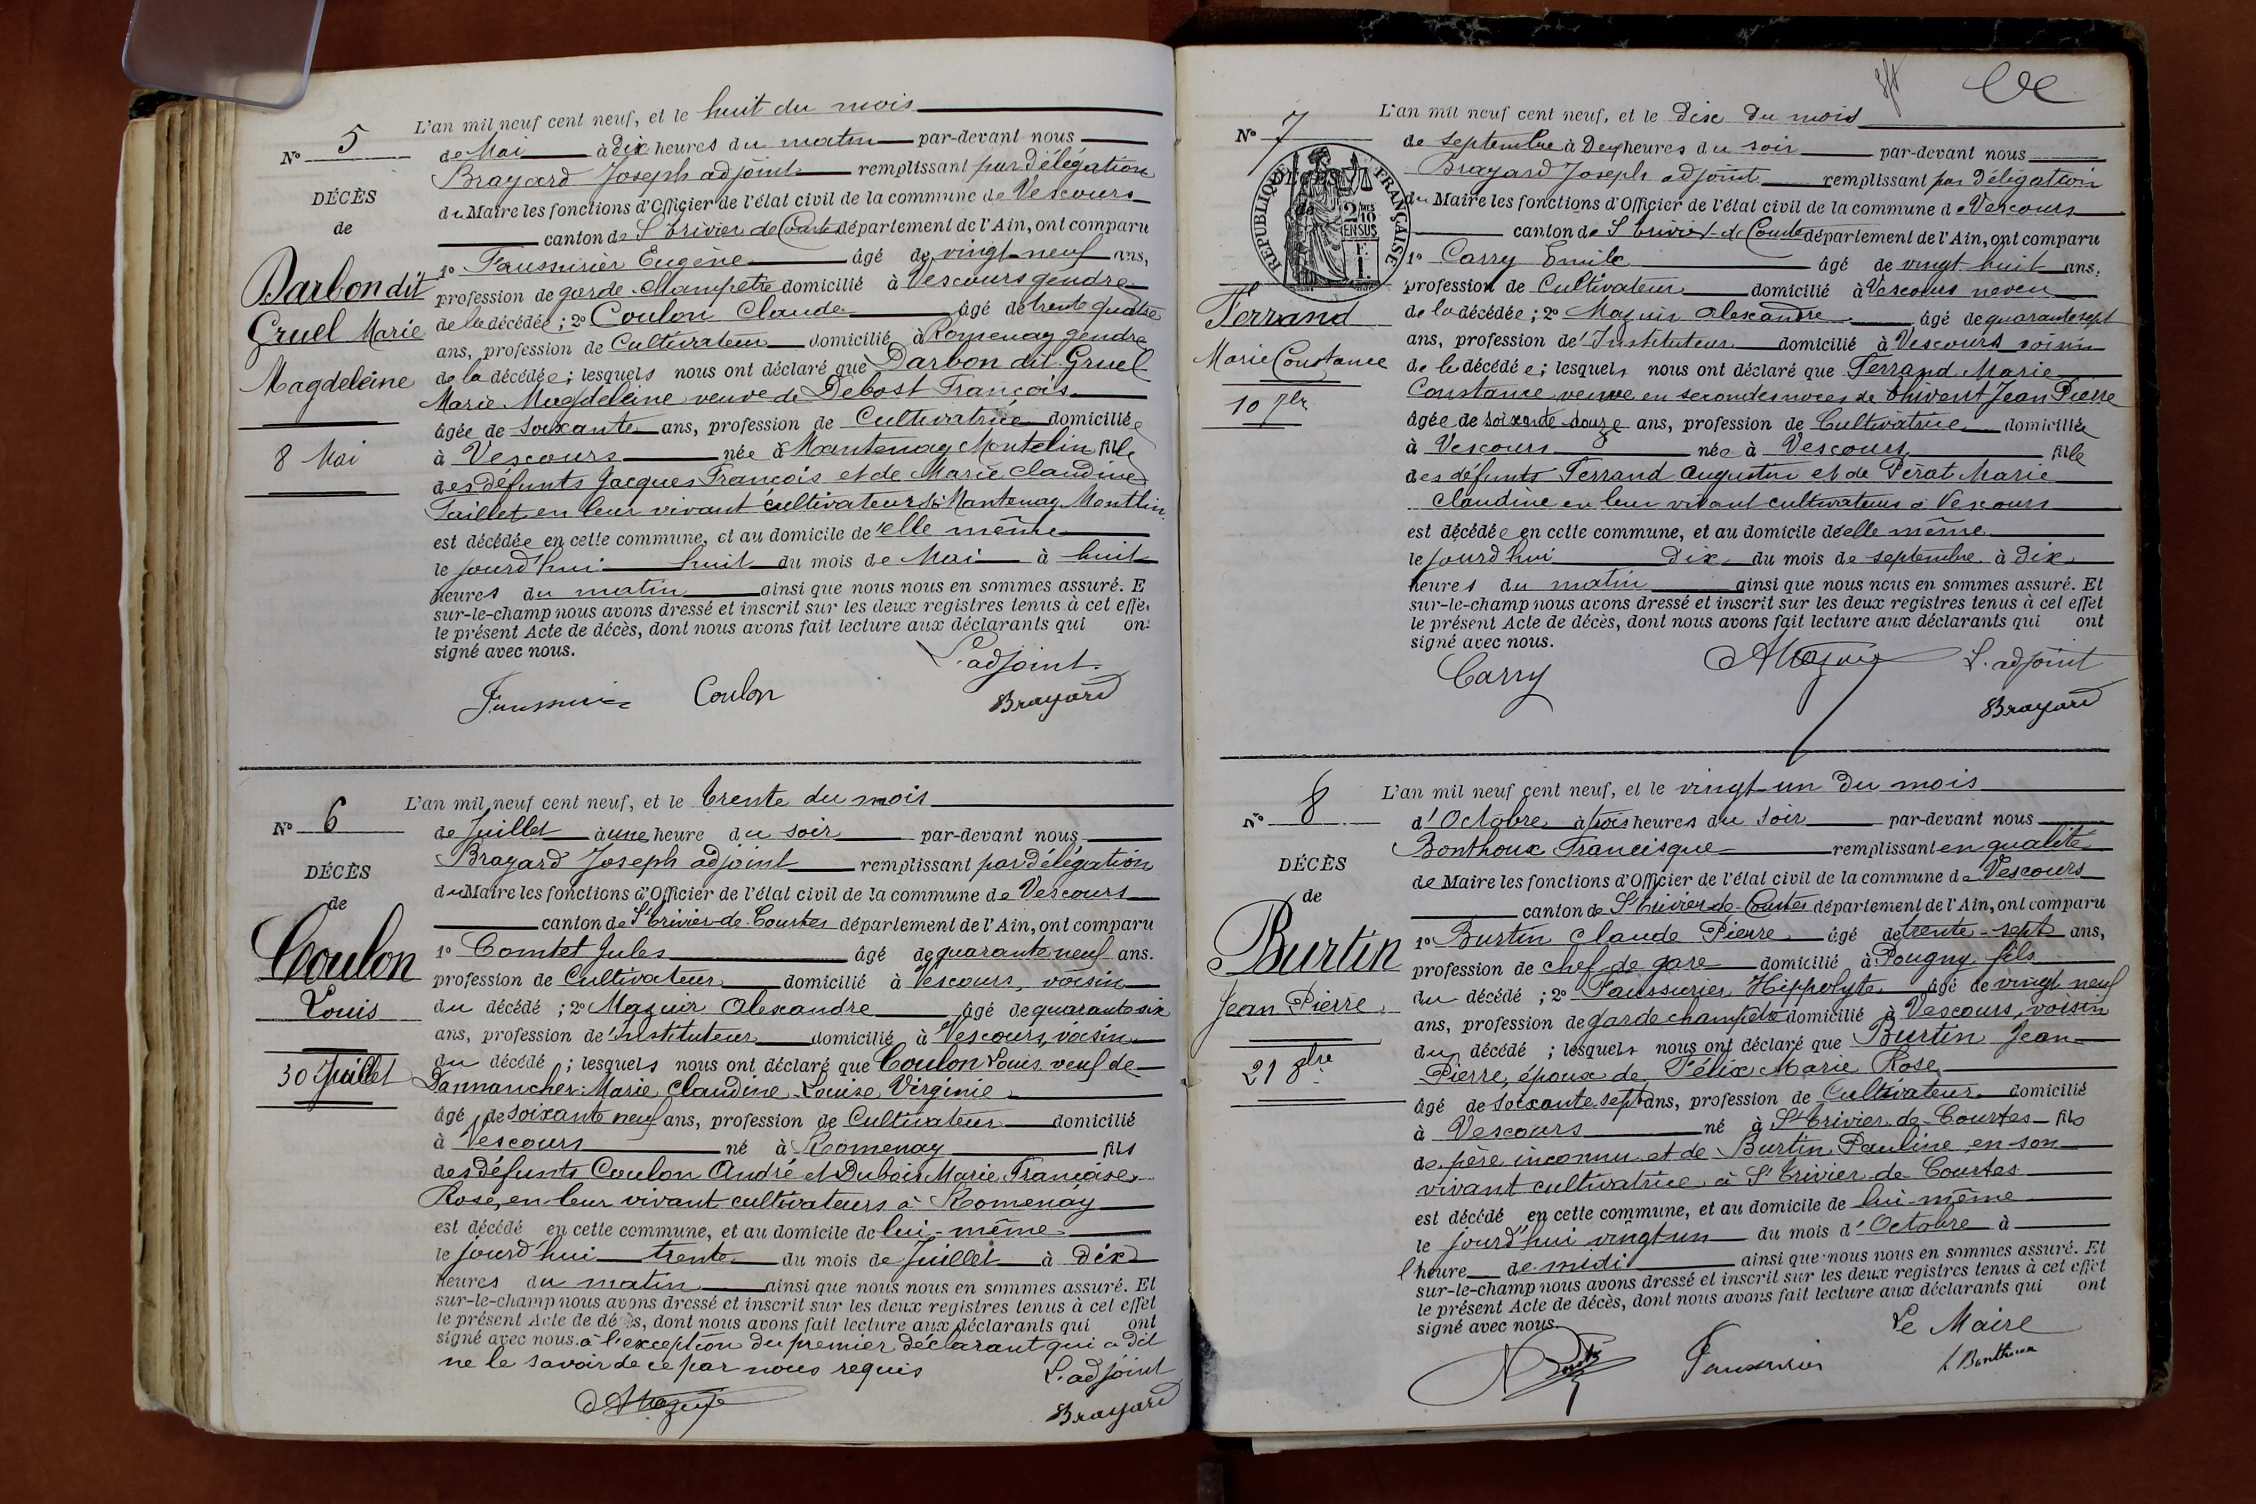 N° 5
DÉCÈS
de
Darbon dit
Gruel Marie
Magdeleine
8 Mai
L'an mil neuf cent neuf, et le huit du mois
de Mai à dix heures du matin par-devant nous
Brayard Joseph adjoint remplissant par délégation
du Maire les fonctions d'Officier de l'état civil de la commune de Vescours
canton de St Trivier de Courtes département de l'Ain, ont comparu
1° Faussurier Eugène âgé de vingt-neuf ans,
profession de garde-champêtre domicilié à Vescours gendre
de la décédée; 2° Coulon Claude âgé de trente quatre
ans, profession de Cultivateur domicilié à Romenay gendre
de la décédée; lesquels nous ont déclaré que Darbon dit Gruel
Marie Magdeleine veuve de Debost François
âgée de soixante ans, profession de Cultivatrice domiciliée
à Vescours née à Mantenay Montelin fille
des défunts Jacques François et de Marie Claudine
Paillet en leur vivant cultivateurs à Mantenay Montlin
est décédée en cette commune, et au domicile de elle même
le jourd'hui huit du mois de Mai à huit
heures du matin ainsi que nous nous en sommes assuré. E
sur-le-champ nous avons dressé et inscrit sur les deux registres tenus à cet effe
le présent Acte de décès, dont nous avons fait lecture aux déclarants qui on
signé avec nous.
L'adjoint
Faussurier Coulon Brayard
N° 6
DÉCÈS
de
Coulon
Louis
30 Juillet
L'an mil neuf cent neuf, et le trente du mois
de Juillet à une heure du soir par-devant nous
Brayard Joseph adjoint remplissant par délégation
du Maire les fonctions d'Officier de l'état civil de la commune de Vescours
canton de St Trivier-de-Courtes département de l'Ain, ont comparu
1° Comtet Jules âgé de quarante neuf ans.
profession de Cultivateur domicilié à Vescours, voisin
du décédé; 2° Mazuir Alexandre âgé de quarante six
ans, profession de Instituteur domicilié à Vescours, voisin
du décédé; lesquels nous ont déclaré que Coulon Louis veuf de
Dannancher Marie Claudine Louise Virginie
âgé de soixante neuf ans, profession de Cultivateur domicilié
à Vescours né à Romenay fils
des défunts Coulon André et Dubois Marie Françoise
Rose, en leur vivant cultivateurs à Romenay
est décédé en cette commune, et au domicile de lui-même
le jourd'hui trente du mois de Juillet à dix
heures du matin ainsi que nous nous en sommes assuré. Et
sur-le-champ nous avons dressé et inscrit sur les deux registres tenus à cet effet
le présent Acte de décès, dont nous avons fait lecture aux déclarants qui ont
signé avec nous. à l'exception du premier déclarant qui a dit
ne le savoir de ce par nous requis
L'adjoint
AMazuir Brayard
N° 7
RÉPUBLIQUE FRANÇAISE
2/10 EN SUS
Ferrand
Marie Constance
10 7bre
L'an mil neuf cent neuf, et le dix du mois
de septembre à Deux heures du soir par-devant nous
Brayard Joseph adjoint remplissant par délégation
du Maire les fonctions d'Officier de l'état civil de la commune de Vescours
canton de St Trivier-de-Courtes département de l'Ain, ont comparu
1° Carry Emile âgé de vingt huit ans,
profession de Cultivateur domicilié à Vescours neveu
de la décédée; 2° Mazuir Alexandre âgé de quarante sept
ans, profession de Instituteur domicilié à Vescours voisin
de la décédée; lesquels nous ont déclaré que Ferrand Marie
Constance veuve en secondes noces de Thivent Jean Pierre
âgée de soixante douze ans, profession de Cultivatrice domiciliée
à Vescours née à Vescours fille
des défunts Ferrand Augustin et de Pérat Marie
Claudine en leur vivant cultivateurs à Vescours
est décédée en cette commune, et au domicile de elle même
le jourd'hui dix du mois de septembre à dix
heures du matin ainsi que nous nous en sommes assuré. Et
sur-le-champ nous avons dressé et inscrit sur les deux registres tenus à cet effet
le présent Acte de décès, dont nous avons fait lecture aux déclarants qui ont
signé avec nous.
Carry AMazuir L'adjoint
Brayard
N° 8
DÉCÈS
de
Burtin
Jean Pierre
21 8bre
L'an mil neuf cent neuf, et le vingt-un du mois
d'Octobre à trois heures du soir par-devant nous
Bonthoux Francisque remplissant en qualité
de Maire les fonctions d'Officier de l'état civil de la commune de Vescours
canton de St Trivier-de-Courtes département de l'Ain, ont comparu
1° Burtin Claude Pierre âgé de trente-sept ans,
profession de chef de gare domicilié à Pougny fils
du décédé; 2° Faussurier Hippolyte âgé de vingt neuf
ans, profession de garde champêtre domicilié à Vescours, voisin
du décédé; lesquels nous ont déclaré que Burtin Jean
Pierre, époux de Félix Marie Rose
âgé de soixante sept ans, profession de Cultivateur domicilié
à Vescours né à St Trivier-de-Courtes fils
de père inconnu et de Burtin Pauline, en son
vivant cultivatrice à St Trivier de Courtes
est décédé en cette commune, et au domicile de lui-même
le jourd'hui vingt un du mois d'Octobre à
l'heure de midi ainsi que nous nous en sommes assuré. Et
sur-le-champ nous avons dressé et inscrit sur les deux registres tenus à cet effet
le présent Acte de décès, dont nous avons fait lecture aux déclarants qui ont
signé avec nous.
Le Maire
Faussurier Bonthoux